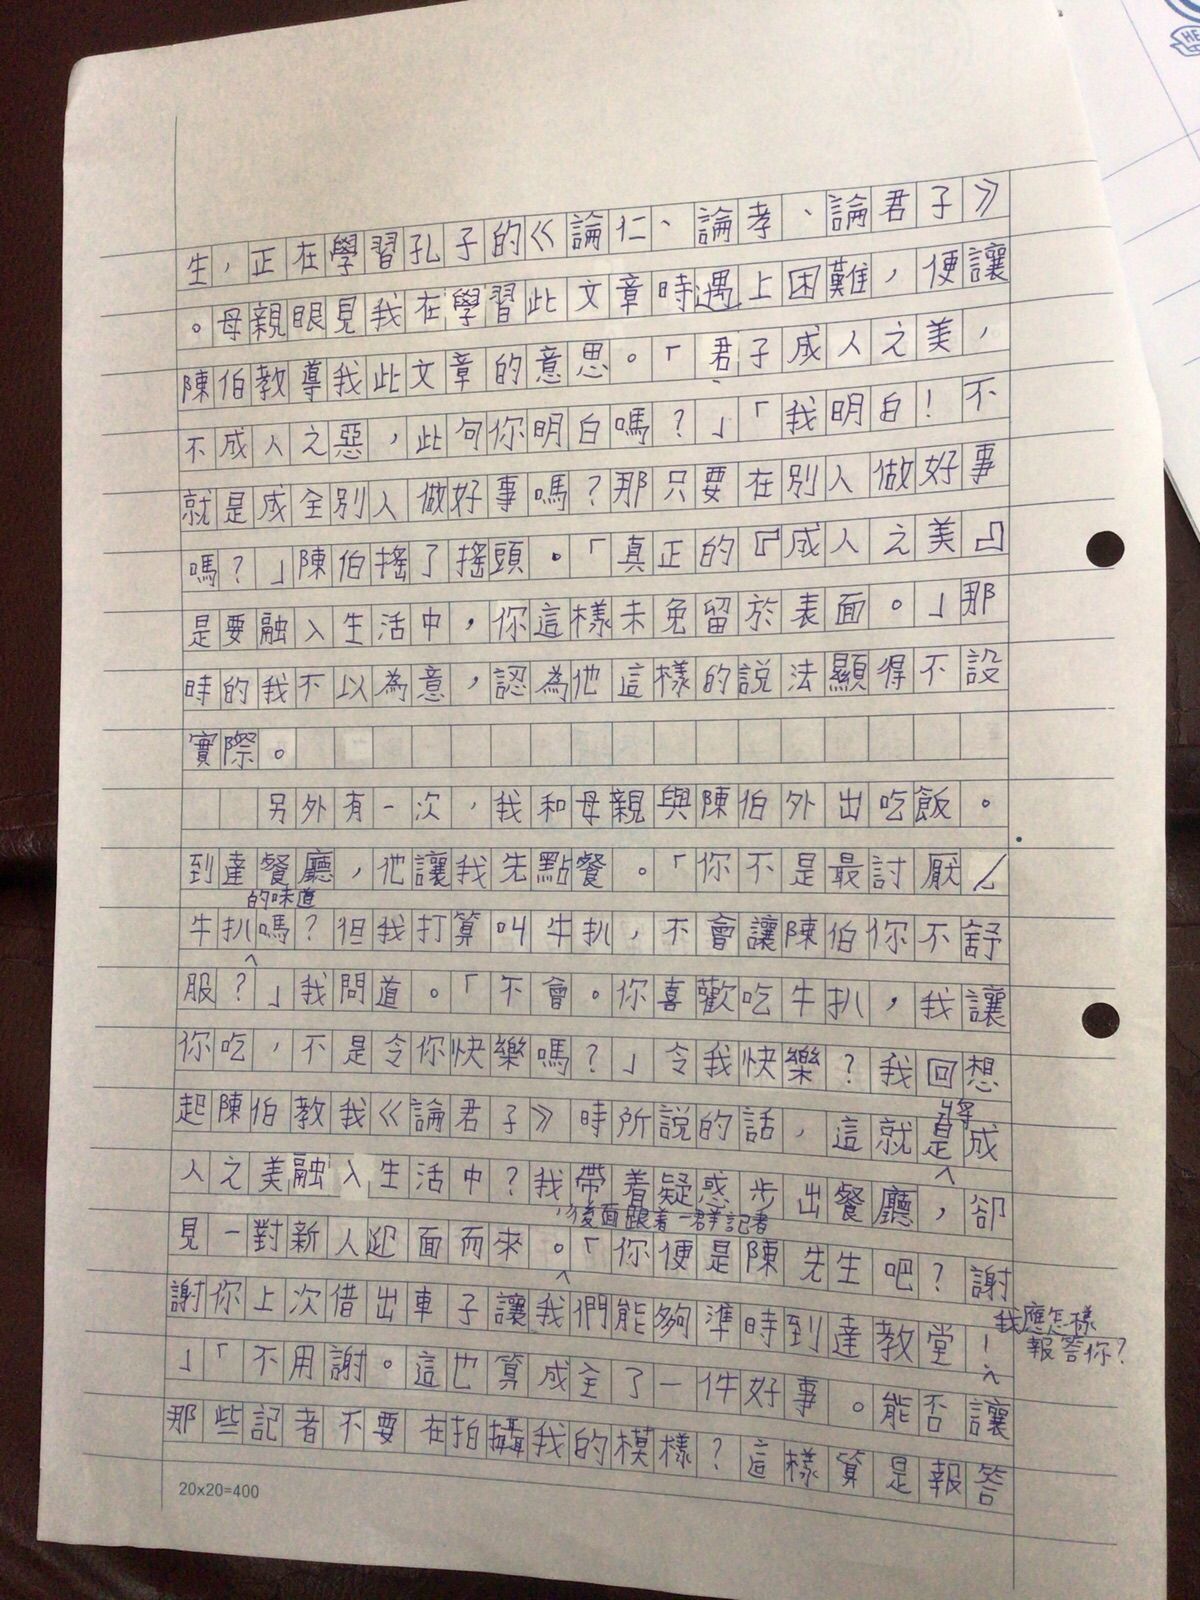 生，正在學習孔子的《論仁、論孝、論君子》
。母親眼見我在學習此文章時遇上困難，便讓
陳伯教導我此文章的意思。「君子成人之美，
不成人之惡，此句你明白嗎？」「我明白！不
就是成全別人做好事嗎？那只要在別人做好事
嗎？」陳伯搖了搖頭。「真正的『成人之美』
是要融入生活中，你這樣未免留於表面。」那
時的我不以為意，認為他這樣的說法顯得不設
實際。
另外有一次，我和母親與陳伯外出吃飯。
到達餐廳，他讓我先點餐。「你不是最討厭
的味道
牛扒嗎？但我打算叫牛扒，不會讓陳伯你不舒
服？」我問道。「不會。你喜歡吃牛扒，我讓
你吃，不是令你快樂嗎？」令我快樂？我回想
起陳伯教我《論君子》時所說的話，這就是成
將
人之美融入生活中？我帶着疑惑步出餐廳，卻
，後面跟着一群記者
見一對新人迎面而來。「你便是陳先生吧？謝
謝你上次借出車子讓我們能夠準時到達教堂！
我應怎樣
報答你？
」「不用謝。這也算成全了一件好事。能否讓
那些記者不要在拍攝我的模樣？這樣算是報答
20x20=400